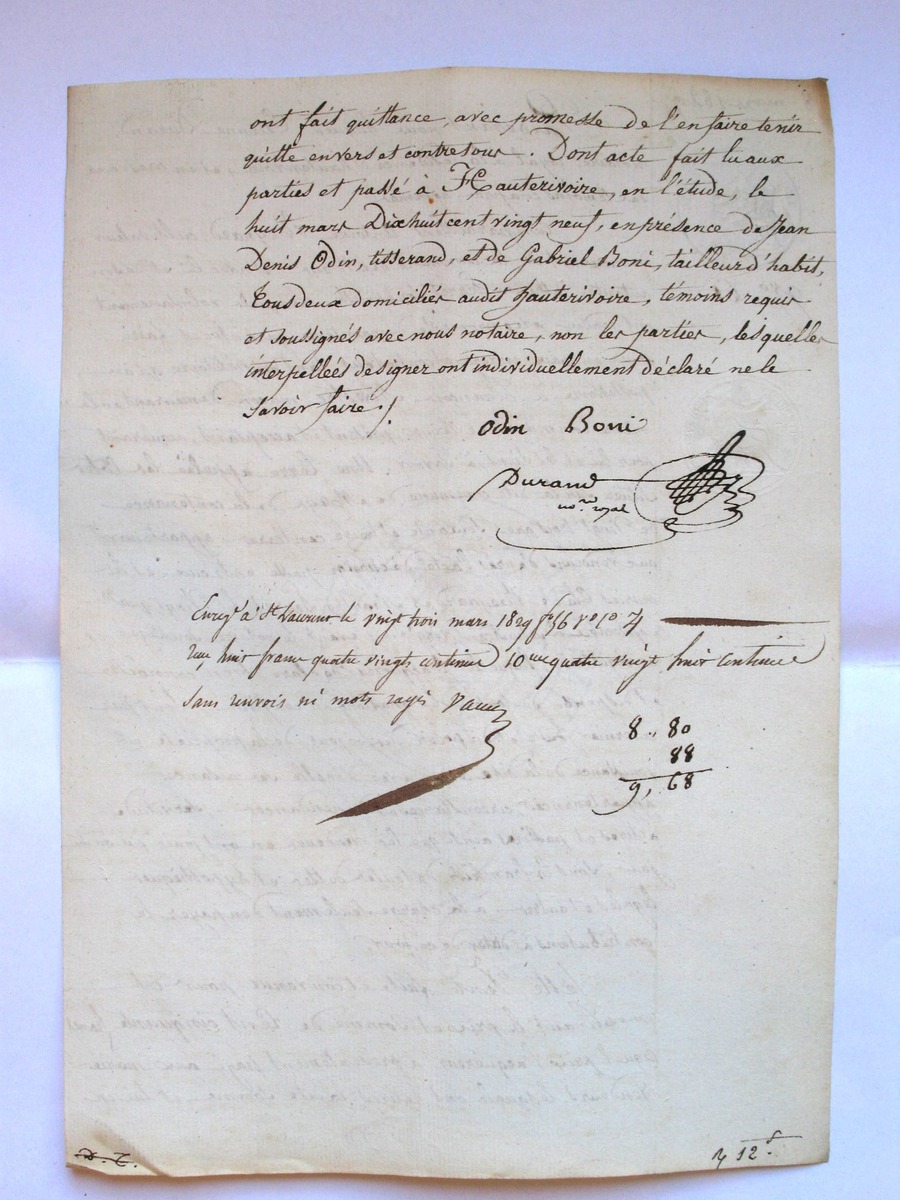 ont fait quittance, avec promesse de l'en faire tenir
quitte envers et contre tous. Dont acte fait lu aux
parties et passé à Hauterivoire, en l'étude, le
huit mars Dix huit cent vingt neuf, en présence de Jean
Denis Odin, tisserand, et de Gabriel Boni, tailleur d'habit,
tous deux domiciliés audit hauterivoire, témoins requis
et soussignés avec nous notaire, non les parties, lesquelles
interpellées de signer ont individuellement déclaré ne le
savoir faire./.
Odin Boni
Durand
no.re royal
Enregé à St Laurent le vingt trois mars 1829 fo 56 Vo Co 7
reçu huit francs quatre vingts centimes 10me quatre vingt huit centimes
sans renvois ni mots rayés
8,, 80
88
9, 68
12